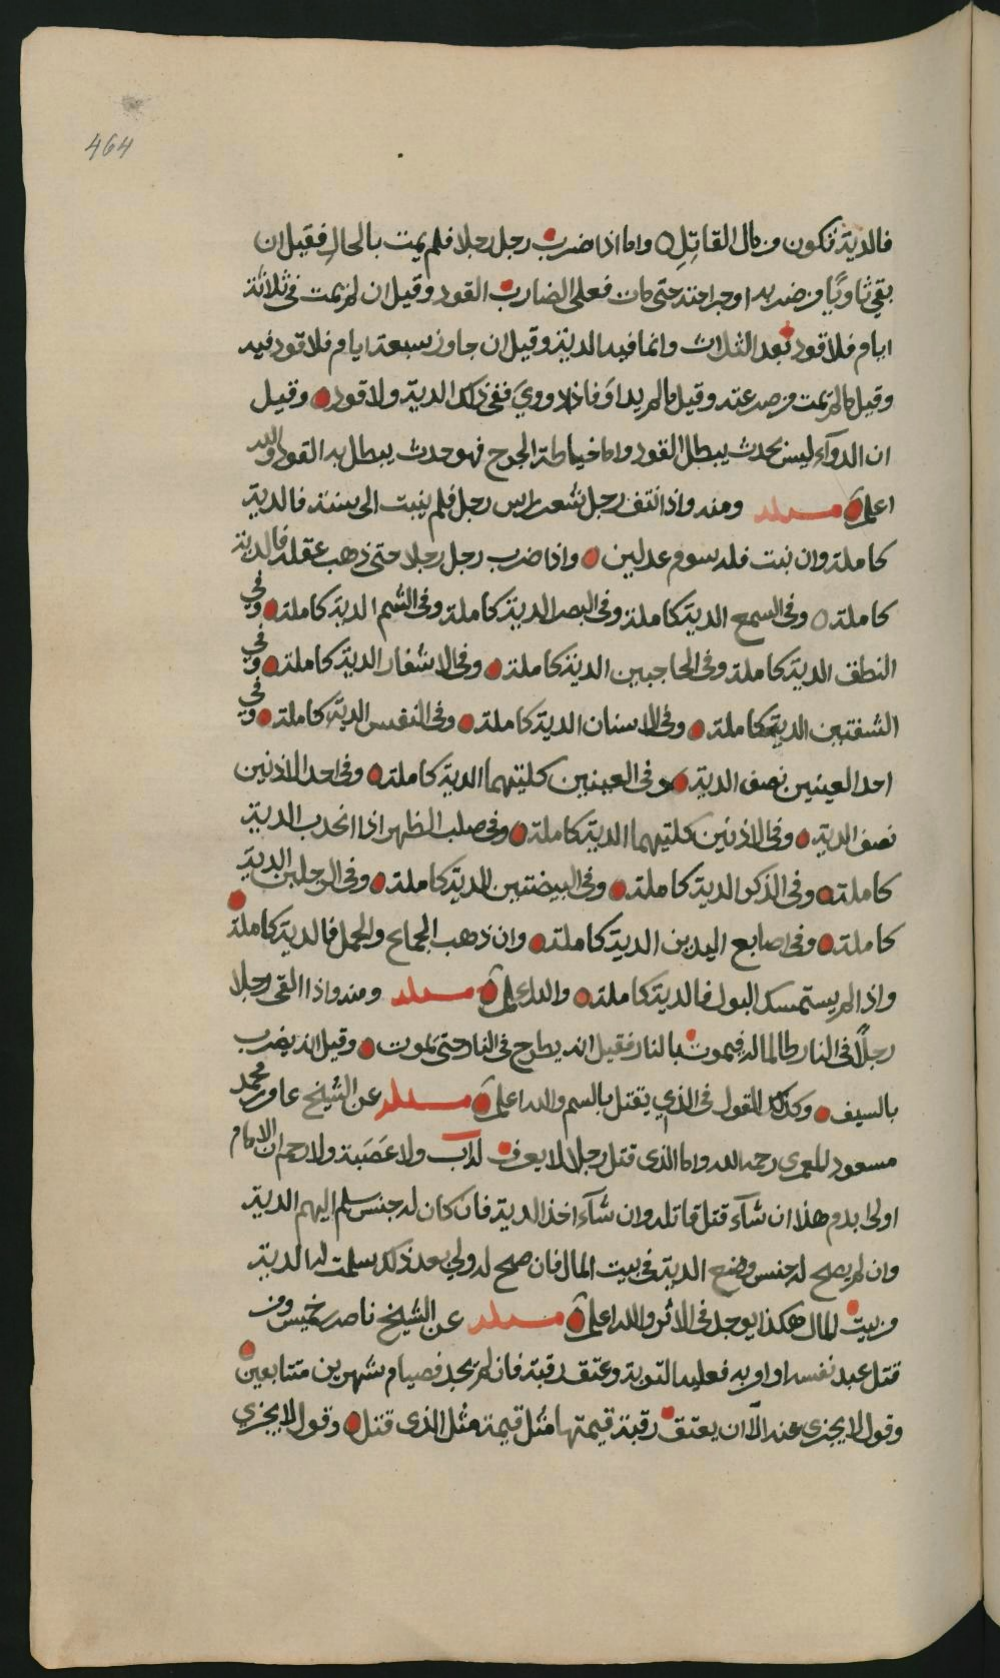 464
فالدية تكون من مال القاتل ○ واما اذا ضرب رجل رجلا فلم يمت بالحال فقيل ان
بقي ثاويًا من ضربه او جراحته حتى مات فعلى الضارب القود وقيل ان لم يمت في ثلاثة
ايام فلا قود بعد الثلاث وانما فيه الدية وقيل ان جاوز سبعة ايام فلا قود فيه
وقيل ما لم يمت من صرعته وقيل ما لم يداوَ فاذا دووي ففي ذلك الدية ولا قود ○ وقيل
ان الدوآء ليس بحدث يبطل القود واما خياطة الجرح فهو حدث يبطل به القود والله
اعلم ○ مسئلة ومنه واذا نتف رجل شعر راس رجل فلم ينبت الى سنة فالدية
كاملة وان نبت فله سوم عدلين ○ واذا ضرب رجل رجلا حتى ذهب عقله فالدية
كاملة ○ وفي السمع الدية كاملة وفي البصر الدية كاملة وفي الشم الدية كاملة ○ وفي
النطق الدية كاملة وفي الحاجبين الدية كاملة ○ وفي الاشفار الدية كاملة ○ وفي
الشفتين الدية كاملة ○ وفي الاسنان الدية كاملة ○ وفي النفس الدية كاملة ○ وفي
احد العينين نصف الدية ○ وفي العينين كليتهما الدية كاملة ○ وفي احد الاذنين
نصف الدية ○ وفي الاذنين كلتيهما الدية كاملة ○ وفي صلب الظهر اذا انحدب الدية
كاملة ○ وفي الذكر الدية كاملة ○ وفي البيضتين الدية كاملة ○ وفي الرجلين الدية
كاملة ○ وفي اصابع اليدين الدية كاملة ○ وان ذهب الجماع والحمل فالدية كاملة ○
واذا لم يستمسك البول فالدية كاملة ○ والله اعلم ○ مسئلة ومنه واذا القى رجلا
رجلًا في النار ظالما له فيموت بالنار فقيل انه يطرح في النار حتى يموت ○ وقيل انه يضرب
بالسيف ○ وكذلك القول في الذي يقتل بالسم والله اعلم ○ مسئلة عن الشيخ عامر بن محمد
مسعود المعمري رحمه الله واما الذي قتل رجلا لا يعرف له اب ولا عَصَبة ولا رحم ان الامام
اولى بدم هذا ان شآء قتل قاتله وان شآء اخذ الدية فان كان له جنس سلم اليهم الدية
وان لم يصح له جنس وضع الدية في بيت المال فان صح له ولي بعد ذلك سلمت له الدية
من بيت المال هكذا يوجد في الاثر والله اعلم ○ مسئلة عن الشيخ ناصر بن خميس ومن
قتل عبد نفسه او اوبه فعليه التوبة وعتق رقبة فان لم يجد فصيام شهرين متتابعين ○
وقول لا يجزي عنه الّا ان يعتق رقبة قيمتها مثل قيمة مثل الذي قتل ○ وقول لا يجزي